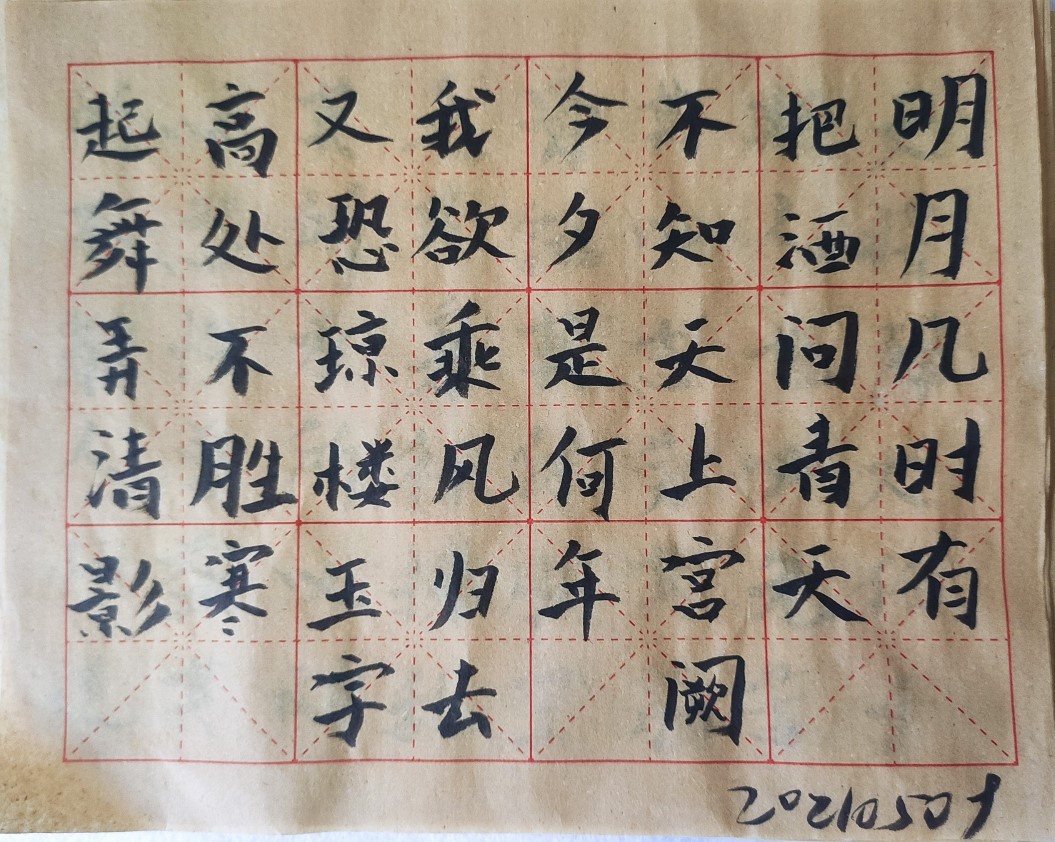 明月几时有
把酒问青天
不知天上宫阙
今夕是何年
我欲乘风归去
又恐琼楼玉宇
高处不胜寒
起舞弄清影
20210509